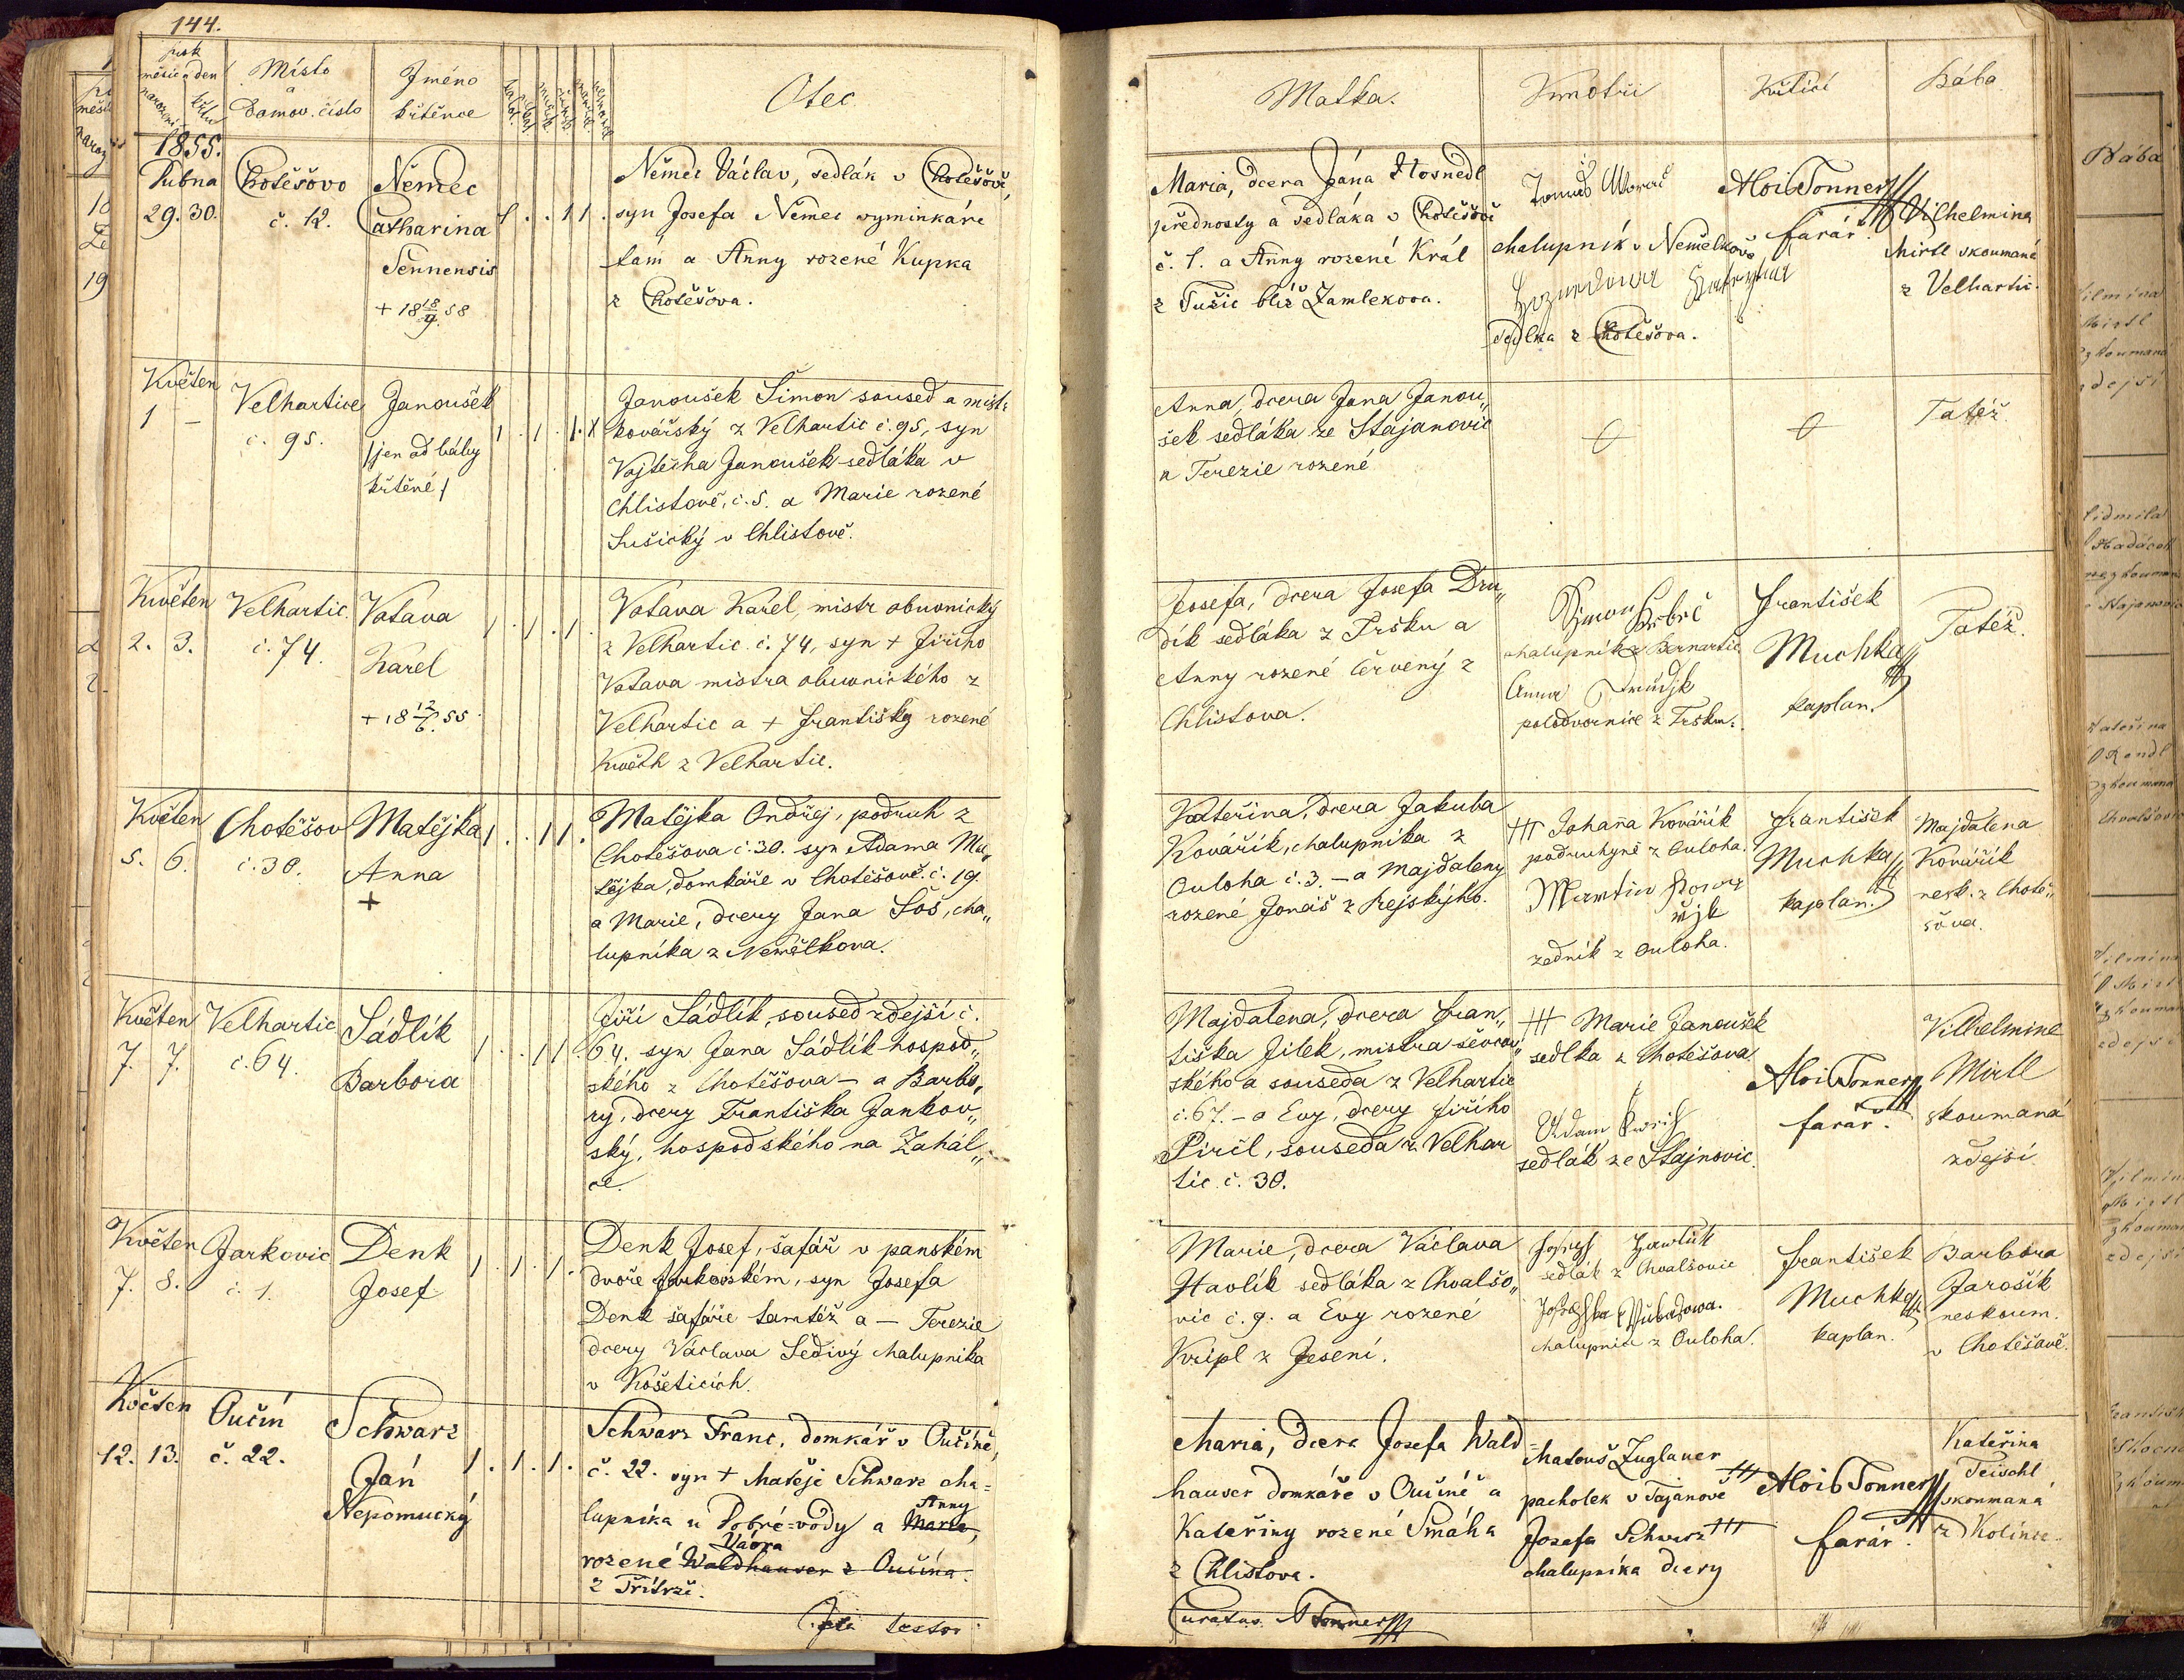 144.
měsíc a den
narození
křtu
Místo
a
Domov. číslo
Jméno
křtěnce
Otec
Matka.
Kmotři
Křtící
Bába
1855.
Dubna
29. 30.
Chotěšovo
č. 12.
Němec
Catharina
Sennensis
+ 18 18/9 58
1 . . 1 1 .
Němec Václav, sedlák v Chotěšově,
syn Josefa Němec vyminkáře
tám a Anny rozené Kupka
z Chotěšova.
Maria, dcera Jána Hosnedl
přednosty a sedláka v Chotěšově
č. 1. a Anny rozené Král
z Tušic blíž Zamlekova.
Tomáš
chalupník v Nemělkově
sedlka z Chotěšova.
Alois Tonner
farář.
Vilhelmina
Mirtl skoumaná
z Velhartic.
Květen
1 –
Velhartice
č. 95.
Janoušek
/jen od báby
křtěné/
Janoušek Šimon soused a mistr
kovářský z Velhartic č. 95, syn
Vojtěcha Janoušek sedláka v
Chlistově, č. 5. a Marie rozené
Sušický v Chlistově.
Anna, dcera Jana Janou„
šek sedláka ze Stajanovic
a Terezie rozené
Tatéž
Květen
2. 3.
Velhartic
č. 74.
Votava
Karel
+ 18 12/6 55.
1 . 1 . 1 .
Votava Karel, mistr obuvnický
z Velhartic č. 74, syn + Jiřího
Votava mistra obuvnického z
Velhartic a + Františky rozené
Květh z Velhartic.
Josefa, dcera Josefa Dru„
dík sedláka z Tršku a
Anny rozené Červený z
Chlistova.
chalupník z Bernartic
Anna Drudjk
polodvornice z Tršku.
František
Muchka
kaplan.
Tatéž.
Květen
5. 6.
Chotěšov
č. 30.
Matějka
Anna
+
1 . . 1 1 .
Matějka Ondřej, podruh z
Chotěšova č. 30. syn Adama Ma„
tějka, domkáře v Chotěšově č. 19.
a Marie, dcery Jana Soš, cha„
lupníka z Nemělkova.
Kateřina, dcera Jakuba
Kovářík, chalupníka z
Ouloha č. 3. – a Majdaleny
rozené Jonáš z Rejského.
+++ Johanna Kovářík
podruhyně z Ouloha.
Martin Kowa
řjk
zedník z Ouloha.
František
Muchka
kaplan.
Majdalena
Kovářík
nesk. z Chotě„
šova.
Květen
7. 7.
Velhartic
č. 64.
Sádlík
Barbora
1 . . 1 1 .
Jiří Sádlík, soused zdejší č.
64. syn Jana Sádlík hospod„
ského z Chotěšova – a Barbo„
ry, dcery Františka Jankov„
ský, hospodského na Zahál„
ce.
Majdalena, dcera Fran„
tiška Jílek, mistra ševcov„
ského a souseda z Velhartic
č. 67. – a Evy, dcery Jiřího
Pircl, souseda z Velhar
tic č. 30.
+++ Marie Janoušek
sedlka z Chotěšova
Adam
sedlák ze Stajnovic.
Alois Tonner
farář.
Vilhelmine
Mirtl
skoumaná
zdejsí
Květen
7. 8.
Jarkovic
č. 1.
Denk
Josef
1 . 1 . 1 .
Denk Josef, šafář v panském
dvoře Jarkovském, syn Josefa
Denk šafáře tamtéž a – Terezie
dcery Václava Šedivý chalupníka
v Košeticích.
Marie, dcera Václava
Havlík sedláka z Chvalšo„
vic č. 9. a Evy rozené
Kripl z Jesení.
Josef Hawlik
sedlák z Chvalšovic
chalupnice z Ouloha.
František
Muchka
kaplan.
Barbora
Jarošík
neskoum.
v Chotěšově.
Květen
12. 13.
Oučín
č. 22.
Schwarz
Ján
Nepomucký
1 . 1 . 1 .
Schwarz Franc, domkář v Oučíně,
č. 22. syn + Matěje Schwarz cha=
lupníka u Dobré=vody a Marie,
Anny
Vávra
rozené Waldhauser z Oučína.
z Třítrží.
Maria, dcera Josefa Wald=
hauser domkáře v Oučíně a
Kateřiny rozené Smáha
z Chlistova.
Matouš Zuglauer
pacholek v Tajanově +++
Josefa Schwarz +++
chalupníka dcery
Alois Tonner
farář.
Kateřina
Teischl
skoumaná
z Kolince.
testor
Curatus A Tonner